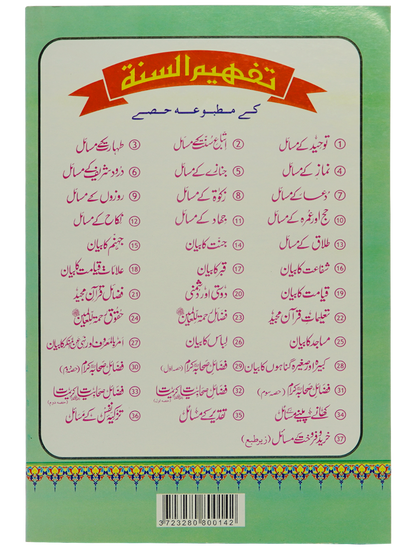 تفہیم السنۃ
کے مطبوعہ حصے
1 توحید کے مسائل 2 اتباع سنت کے مسائل 3 طہارت کے مسائل
4 نماز کے مسائل 5 جنازے کے مسائل 6 درود شریف کے مسائل
7 دعا کے مسائل 8 زکوٰۃ کے مسائل 9 روزوں کے مسائل
10 حج اور عمرہ کے مسائل 11 جہاد کے مسائل 12 نکاح کے مسائل
13 طلاق کے مسائل 14 جنت کا بیان 15 جہنم کا بیان
16 شفاعت کا بیان 17 قبر کا بیان 18 علامات قیامت کا بیان
19 قیامت کا بیان 20 دوستی اور دشمنی 21 فضائل قرآن مجید
22 تعلیمات قرآن مجید 23 فضائل رحمۃ للعالمین 24 حقوق رحمۃ للعالمین
25 مساجد کا بیان 26 لباس کا بیان 27 امر بالمعروف اور نہی عن المنکر کا بیان
28 کبیرہ اور صغیرہ گناہوں کا بیان 29 فضائل صحابہ کرام (حصہ اول) 30 فضائل صحابہ کرام (حصہ دوم)
31 فضائل صحابہ کرام (حصہ سوم) 32 فضائل صحابیات 33 فضائل صحابیات
34 کھانے پینے کے مسائل 35 تقدیر کے مسائل 36 تزکیہ نفس کے مسائل
37 خرید و فروخت کے مسائل (زیر طبع)
3723280800142